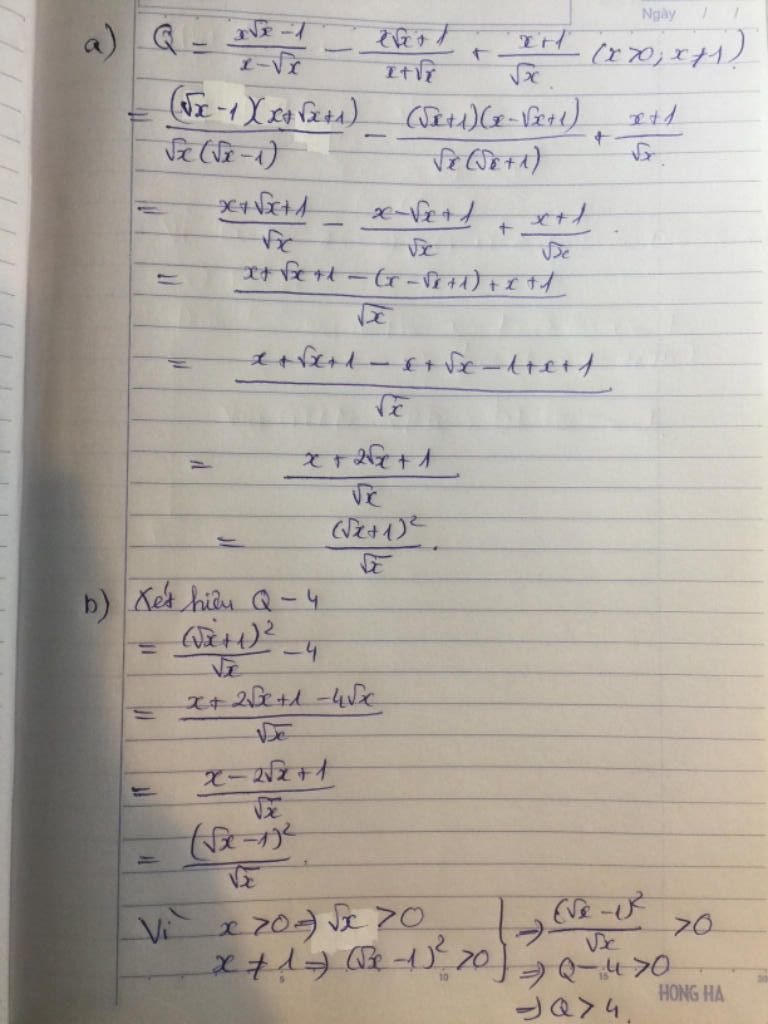 Ngày / /
a) Q = \frac{x\sqrt{x}-1}{x-\sqrt{x}} - \frac{x\sqrt{x}+1}{x+\sqrt{x}} + \frac{x+1}{\sqrt{x}} (x>0; x≠1)
= \frac{(\sqrt{x}-1)(x+\sqrt{x}+1)}{\sqrt{x}(\sqrt{x}-1)} - \frac{(\sqrt{x}+1)(x-\sqrt{x}+1)}{\sqrt{x}(\sqrt{x}+1)} + \frac{x+1}{\sqrt{x}}
= \frac{x+\sqrt{x}+1}{\sqrt{x}} - \frac{x-\sqrt{x}+1}{\sqrt{x}} + \frac{x+1}{\sqrt{x}}.
= \frac{x+\sqrt{x}+1-(x-\sqrt{x}+1)+x+1}{\sqrt{x}}
= \frac{x+\sqrt{x}+1-x+\sqrt{x}-1+x+1}{\sqrt{x}}
= \frac{x+2\sqrt{x}+1}{\sqrt{x}}
= \frac{(\sqrt{x}+1)^2}{\sqrt{x}}.
b) Xét hiệu Q - 4
= \frac{(\sqrt{x}+1)^2}{\sqrt{x}} - 4
= \frac{x+2\sqrt{x}+1-4\sqrt{x}}{\sqrt{x}}
= \frac{x-2\sqrt{x}+1}{\sqrt{x}}
= \frac{(\sqrt{x}-1)^2}{\sqrt{x}}.
Vì x>0 ⇒ \sqrt{x}>0 } ⇒ \frac{(\sqrt{x}-1)^2}{\sqrt{x}} > 0
x≠1 ⇒ (\sqrt{x}-1)^2>0 ⇒ Q-4>0
⇒ Q>4.
5 10 15 20
HONG HA